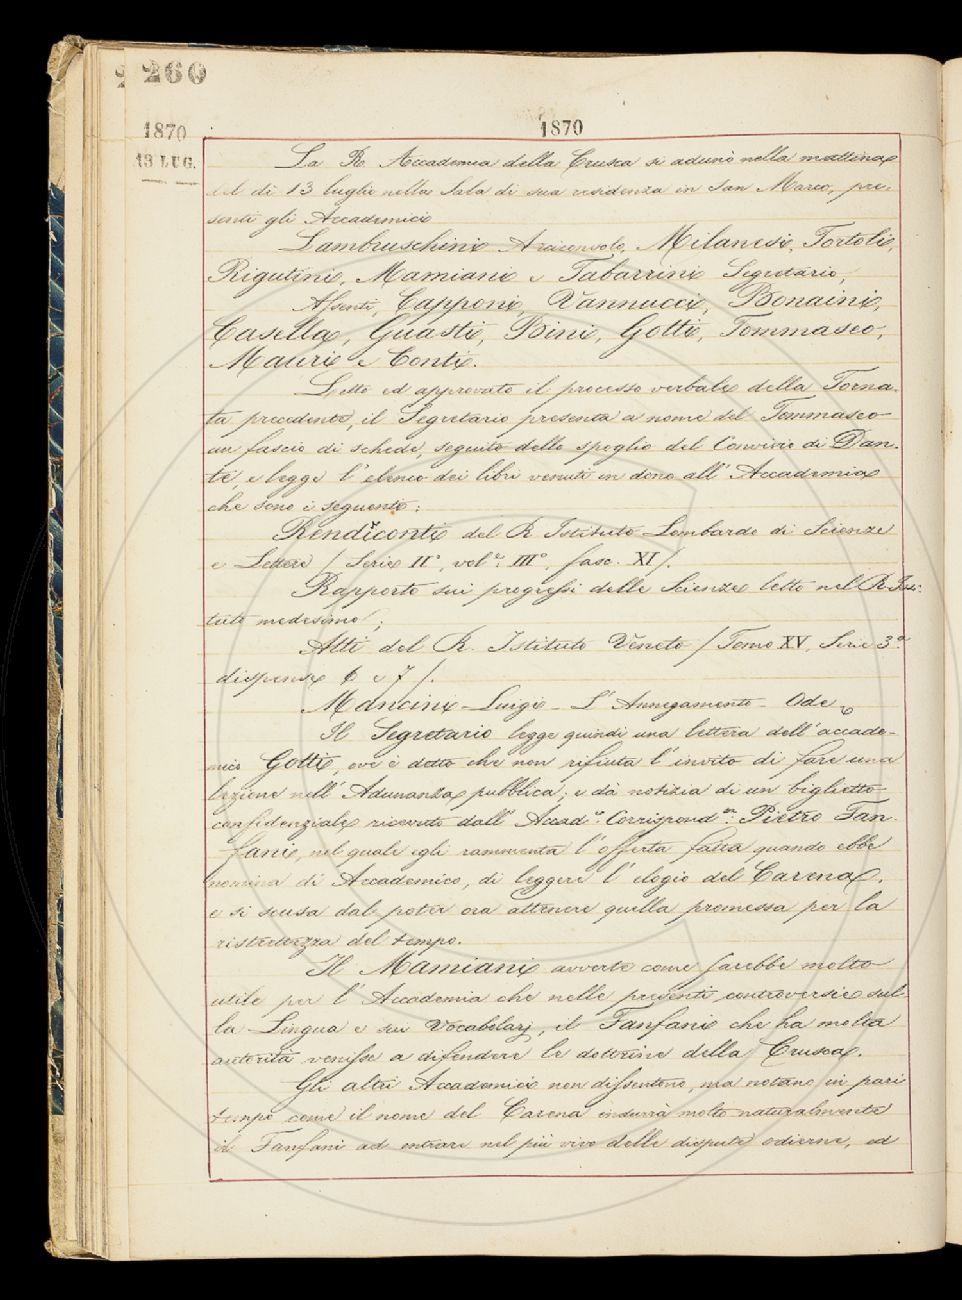 260
1870
1870
13 LUG.
La R. Accademia della Crusca si adunò nella mattina
del dì 13 luglio nella Sala di sua residenza in San Marco, pre-
senti gli Accademici
Lambruschini Arciconsolo, Milanesi, Tortoli,
Rigutini, Mamiani e Tabarrini Segretario,
Assenti, Capponi, Vannucci, Bonaini,
Casella, Guasti, Bini, Gotti, Tommaseo,
Mauri e Conti.
Letto ed approvato il processo verbale della Torna-
ta precedente, il Segretario presenta a nome del Tommaseo
un fascio di schede, seguito dello spoglio del Convivio di Dan-
te, e legge l'elenco dei libri venuti in dono all'Accademia
che sono i seguenti:
Rendiconti del R. Istituto Lombardo di Scienze
e Lettere / Serie II.ª vol.e III.º fasc. XI /.
Rapporto sui progressi delle Scienze letto nel R. Isti-
tuto medesimo;
Atti del R. Istituto Veneto / Tomo XV, Serie 3.ª
dispense 6 e 7 /.
Mancini - Luigi - L'Annegamento - Ode
Il Segretario legge quindi una lettera dell'accade-
mico Gotti, ove è detto che non rifiuta l'invito di fare una
lezione nell'Adunanza pubblica; e dà notizia di un biglietto
confidenziale ricevuto dall'Accad.o Corrispond.te Pietro Fan-
fani, nel quale egli rammenta l'offerta fatta quando ebbe
nomina di Accademico, di leggere l'elogio del Carena,
e si scusa dal poter ora attenere quella promessa per la
ristrettezza del tempo.
Il Mamiani avverte come sarebbe molto
utile per l'Accademia che nelle presenti controversie sul-
la Lingua e sui Vocabolarj, il Fanfani che ha molta
autorità venisse a difendere le dottrine della Crusca.
Gli altri Accademici non dissentono, ma notano in pari
tempo come il nome del Carena indurrà molto naturalmente
il Fanfani ad entrare nel più vivo delle dispute odierne, ed